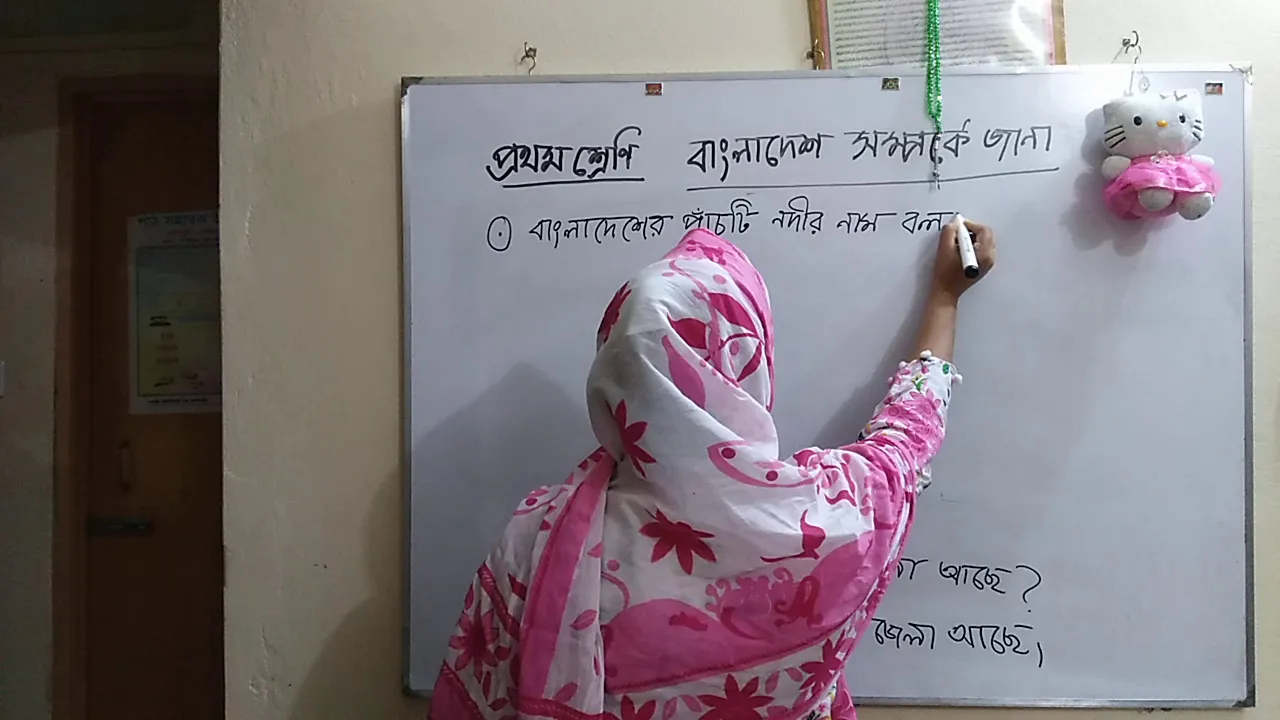 প্রথম শ্রেণি বাংলাদেশ সম্পর্কে জানা
বাংলাদেশের পাঁচটি নদীর নাম বল
আছে?
জেলা আছে।